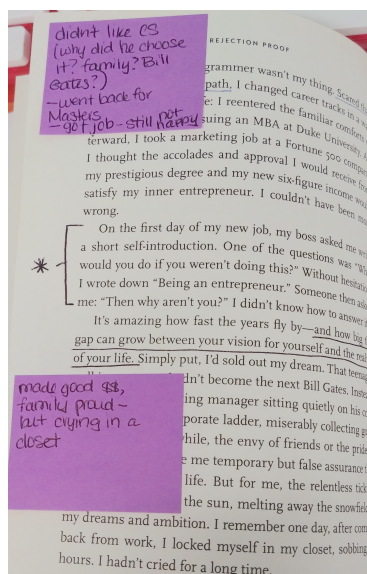 didn't like CS
(why did he choose
it? family? Bill
Gates?)
- went back for
Masters
- got job - still not happy
REJECTION PROOF
grammer wasn't my thing. Scared
path, I changed career tracks in a
e: I reentered the familiar
suing an MBA at Duke University.
terward, I took a marketing job at a Fortune 500
I thought the accolades and approval I would receive
my prestigious degree and my new six-figure income
satisfy my inner entrepreneur. I couldn't have been
wrong.
On the first day of my new job, my boss asked me
a short self-introduction. One of the questions was
would you do if you weren't doing this?" Without
I wrote down "Being an entrepreneur." Someone then
me: "Then why aren't you?" I didn't know how to answer
It's amazing how fast the years fly by—and how big
gap can grow between your vision for yourself and the
of your life. Simply put, I'd sold out my dream. That
dn't become the next Bill Gates.
ing manager sitting quietly on his
porate ladder, miserably collecting
while, the envy of friends or the
e me temporary but false assurance
life. But for me, the relentless
the sun, melting away the
my dreams and ambition. I remember one day, after
back from work, I locked myself in my closet, sobbing
hours. I hadn't cried for a long time.
made good $$,
family proud -
but crying in a
closet